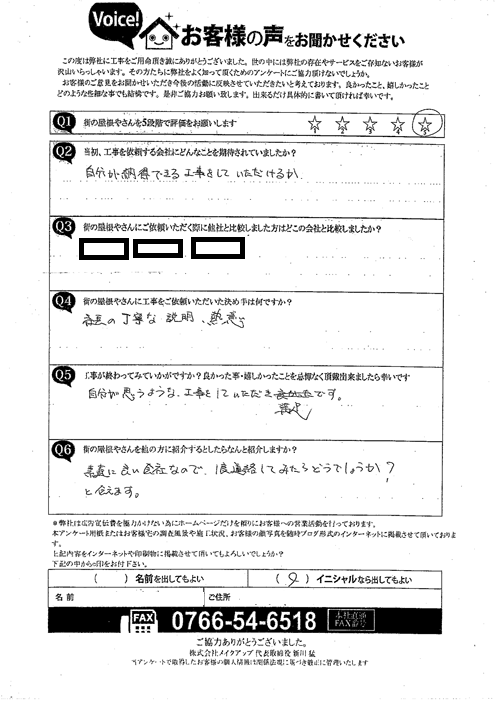 Voice!
お客様の声をお聞かせください
この度は弊社に工事をご用命頂き誠にありがとうございました。世の中には弊社の存在やサービスをご存知ないお客様が
沢山いらっしゃいます。その方たちに弊社をよく知って頂くためのアンケートにご協力頂けないでしょうか。
お客様のご意見をお聞かせいただき今後の活動に反映させていただきたいと考えております。良かったこと、嬉しかったこと
どのような些細な事でも結構です。是非ご協力お願い致します。出来るだけ具体的に書いて頂ければ幸いです。
Q1 街の屋根やさんを5段階で評価をお願いします
1 2 3 4 5
Q2 当初、工事を依頼する会社にどんなことを期待されていましたか？
自分が納得できる工事をしていただけるか
Q3 街の屋根やさんにご依頼いただく際に他社と比較しました方はどこの会社と比較しましたか？
Q4 街の屋根やさんに工事をご依頼いただいた決め手は何ですか？
の丁寧な説明、熱意
Q5 工事が終わってみていかがですか？良かった事・嬉しかったことを忌憚なく頂戴出来ましたら幸いです
自分が思うような、工事をしていただき です。
満足
Q6 街の屋根やさんを他の方に紹介するとしたらなんと紹介しますか？
素直に良い会社なので、1度連絡してみたらどうでしょうか？
と伝えます。
＊弊社は広告宣伝費を極力かけない為にホームページだけを頼りにお客様への営業活動を行っております。
本アンケート用紙またはお客様宅の調査風景や施工状況、お客様の顔写真を随時ブログ形式のインターネットに掲載させて頂いておりま
す。
上記内容をインターネットや印刷物に掲載させて頂いてもよろしいでしょうか？
下記の中から○印をお付下さい。
（ ）名前を出してもよい （○）イニシャルなら出してもよい
名 前 ご住所
FAX 0766-54-6518 本社直通 FAX番号
ご協力ありがとうございました。
株式会社メイクアップ 代表取締役 新川 猛
アンケートで取得したお客様の個人情報は関係法規に基づき厳正に管理いたします